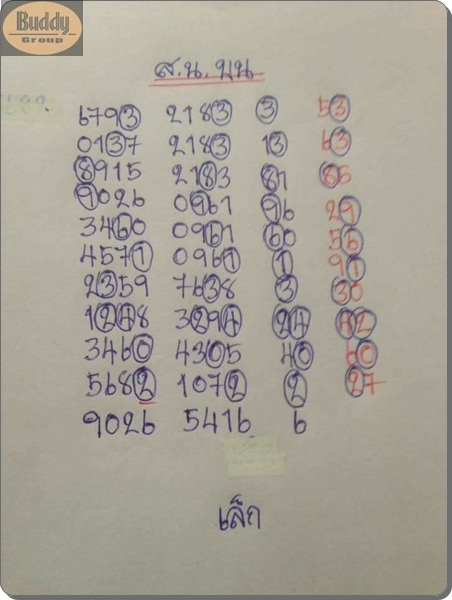 Buddy
Group
ส.น.บน
6793 2183 3 53
0137 2183 13 63
8915 2183 81 85
9026 0961 96 29
3460 0961 60 56
4571 0961 1 91
2359 7638 3 30
1248 3294 24 42
3460 4305 40 60
5682 1072 2 27
9026 5416 6
เล็ก